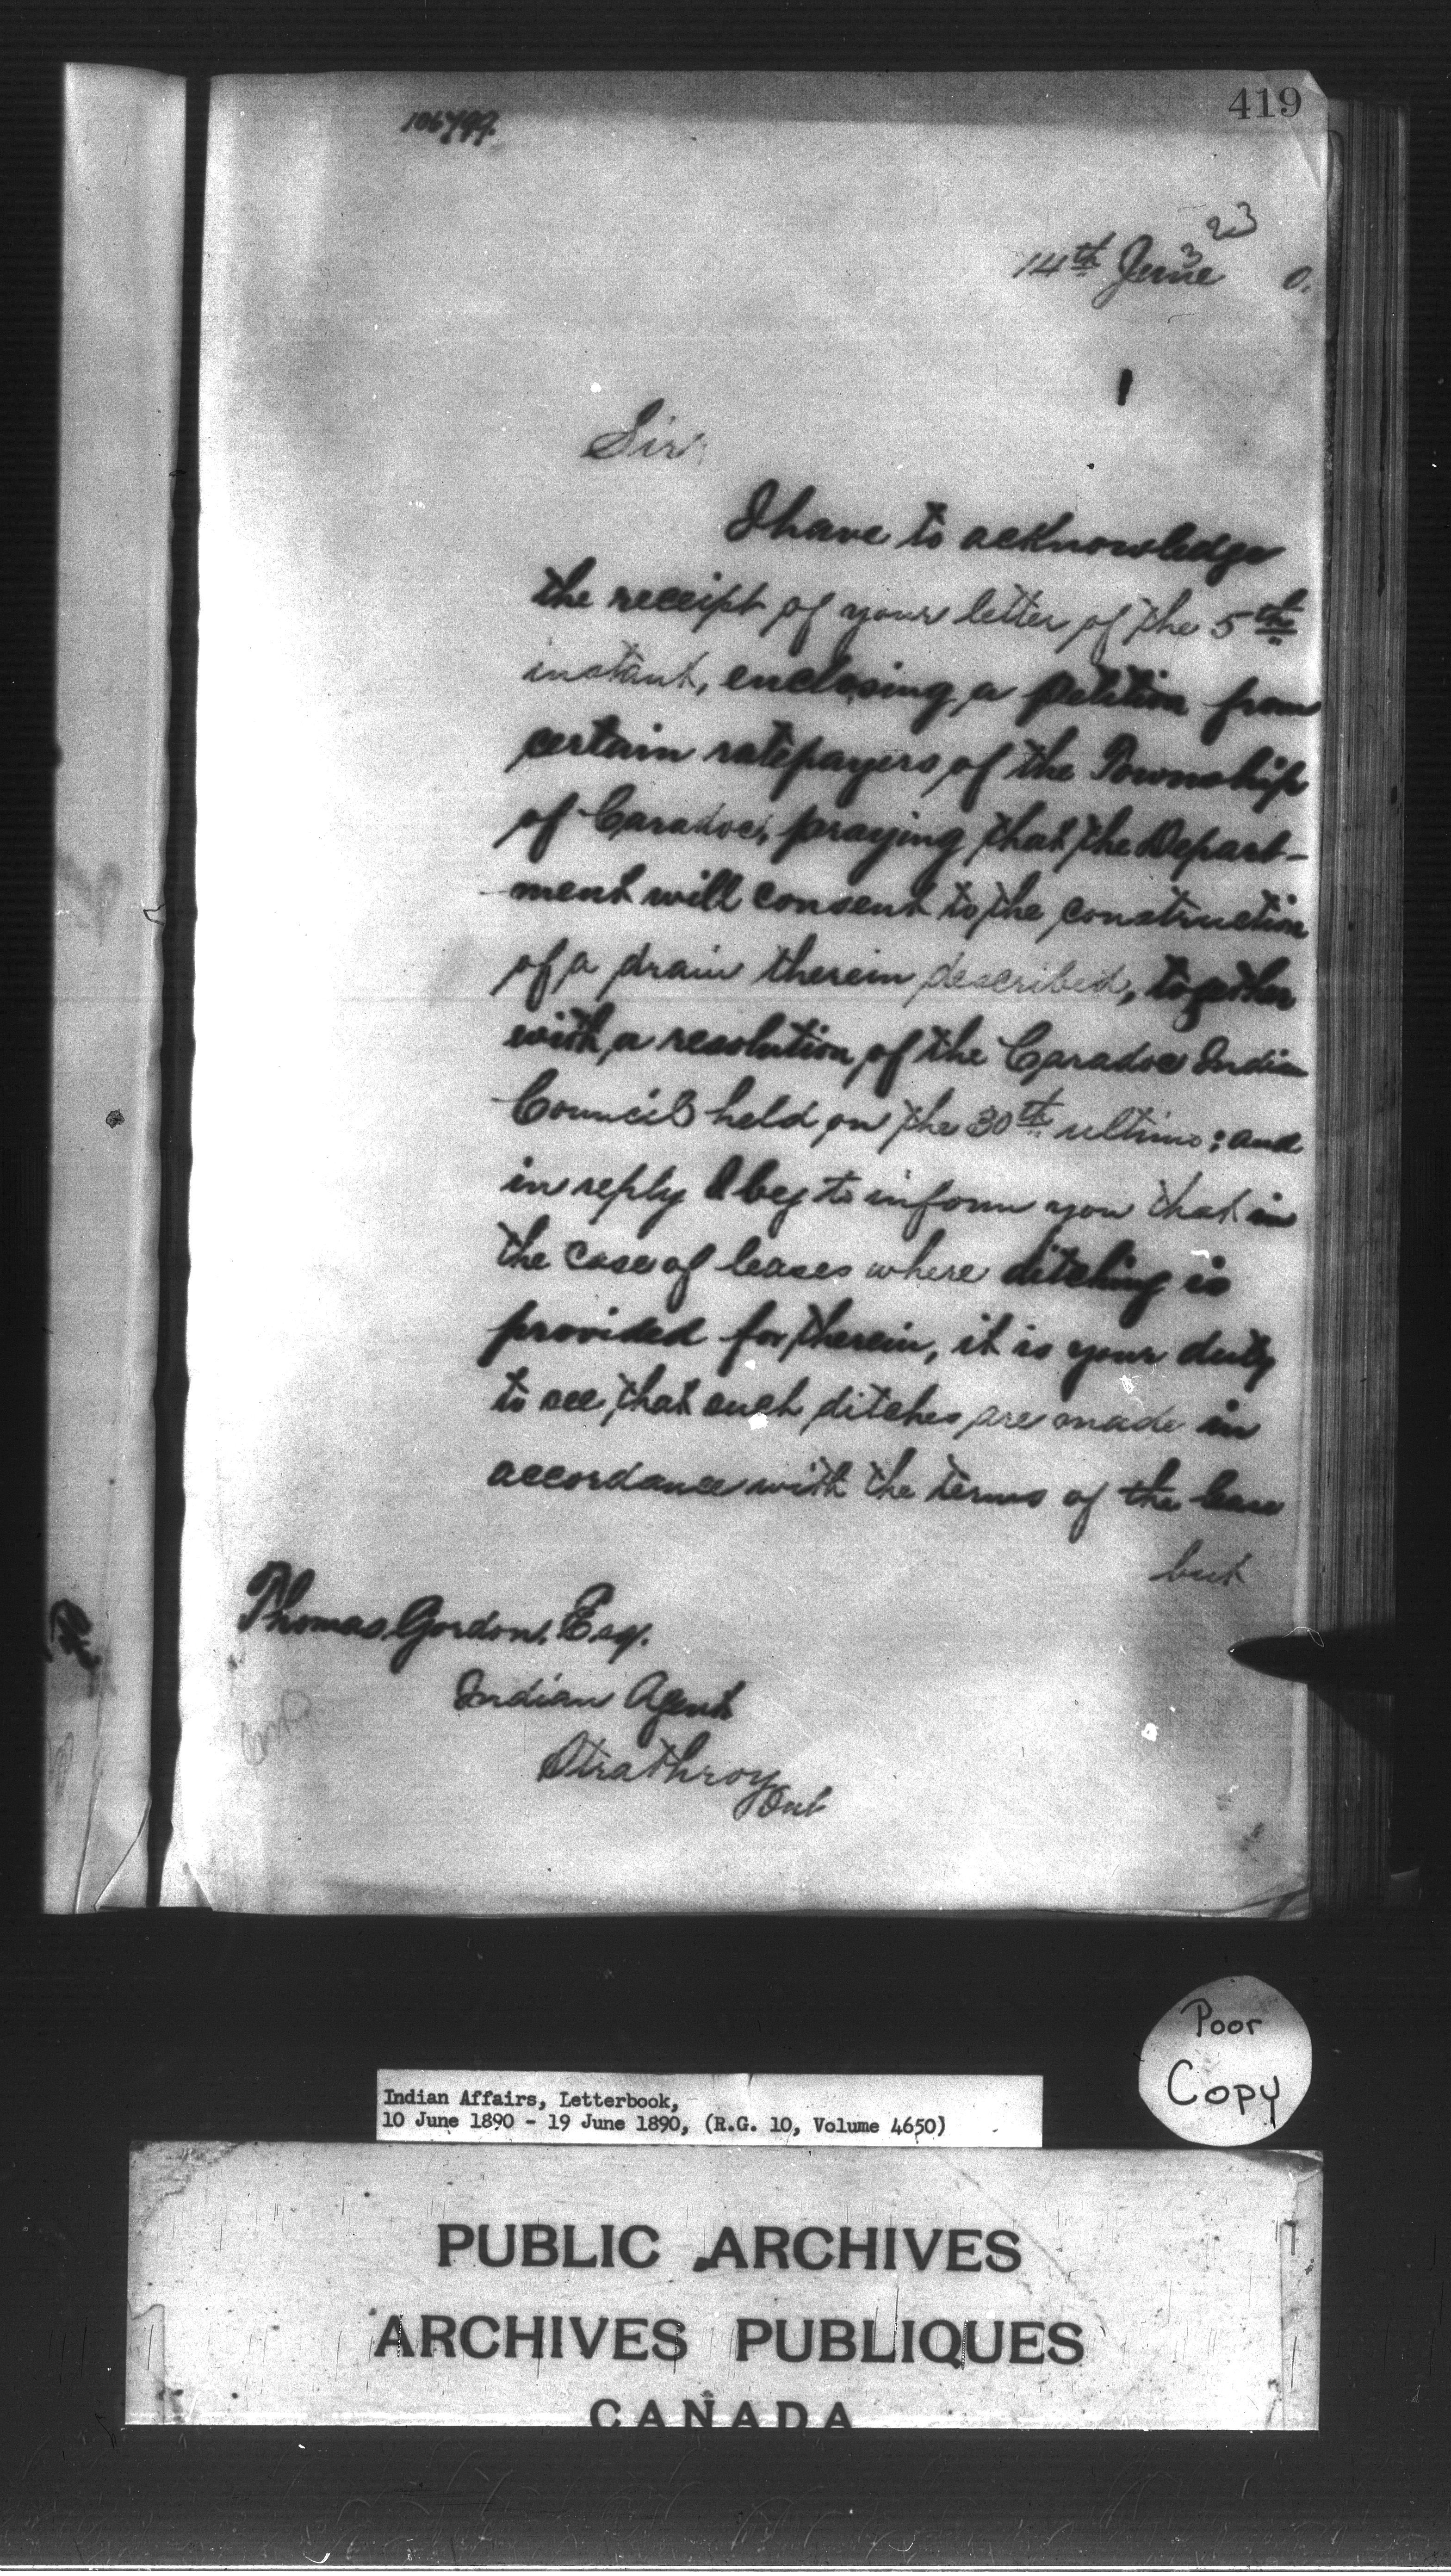 419
14th June 0.
23
3
Sir,
I have to acknowledge
the receipt of your letter of the 5th
instant, enclosing a petition from
certain ratepayers of the Township
of Caradoc, praying that the Depart-
ment will consent to the construction
of a drain therein described, together
with a resolution of the Caradoc Indian
Council held on the 30th ultimo; and
in reply I beg to inform you that in
the case of leases where ditching is
provided for therein, it is your duty
to see that such ditches are made in
accordance with the terms of the lease
but
Thomas Gordon, Esq.
Indian Agent
Strathroy
Ont
Poor
Copy
Indian Affairs, Letterbook,
10 June 1890 - 19 June 1890, (R.G. 10, Volume 4650)
PUBLIC ARCHIVES
ARCHIVES PUBLIQUES
CANADA